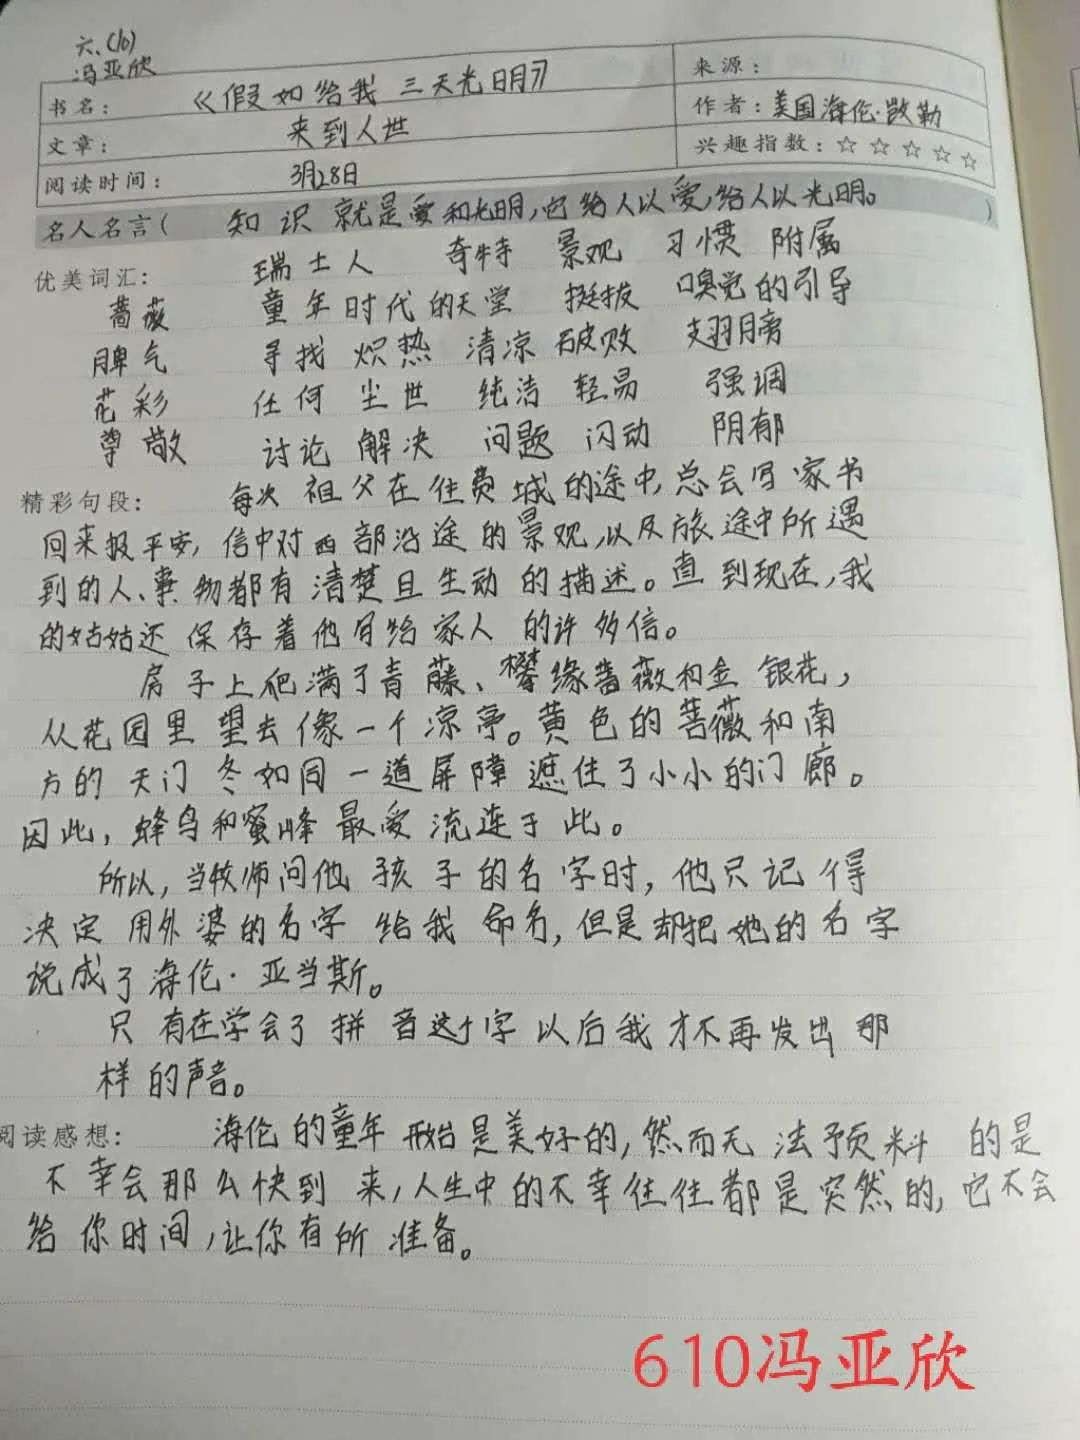 六、(10)
冯亚欣
书名： 《假如给我三天光明》
来源：
作者：美国海伦·凯勒
文章： 来到人世
兴趣指数：☆ ☆ ☆ ☆ ☆
阅读时间： 3月28日
名人名言( 知识就是爱和光明，它给人以爱，给人以光明。 )
优美词汇： 瑞士人 奇特 景观 习惯 附属
蔷薇 童年时代的天堂 挺拔 嗅觉的引导
脾气 寻找 炽热 清凉 破败 翅膀
花彩 任何 尘世 纯洁 轻易 强调
尊敬 讨论 解决 问题 闪动 阴郁
精彩句段： 每次祖父在往费城的途中，总会写家书
回来报平安，信中对西部沿途的景观，以及旅途中所遇
到的人、事物都有清楚且生动的描述。直到现在，我
的姑姑还保存着他写给家人的许多信。
房子上爬满了青藤、攀缘蔷薇和金银花，
从花园里望去像一个凉亭。黄色的蔷薇和南
方的天门冬如同一道屏障遮住了小小的门廊。
因此，蜂鸟和蜜蜂最爱流连于此。
所以，当牧师问他孩子的名字时，他只记得
决定用外婆的名字给我命名，但是却把她的名字
说成了海伦·亚当斯。
只有在学会了拼音这个字以后我才不再发出那
样的声音。
阅读感想： 海伦的童年开始是美好的，然而无法预料的是
不幸会那么快到来，人生中的不幸往往都是突然的，它不会
给你时间，让你有所准备。
610冯亚欣